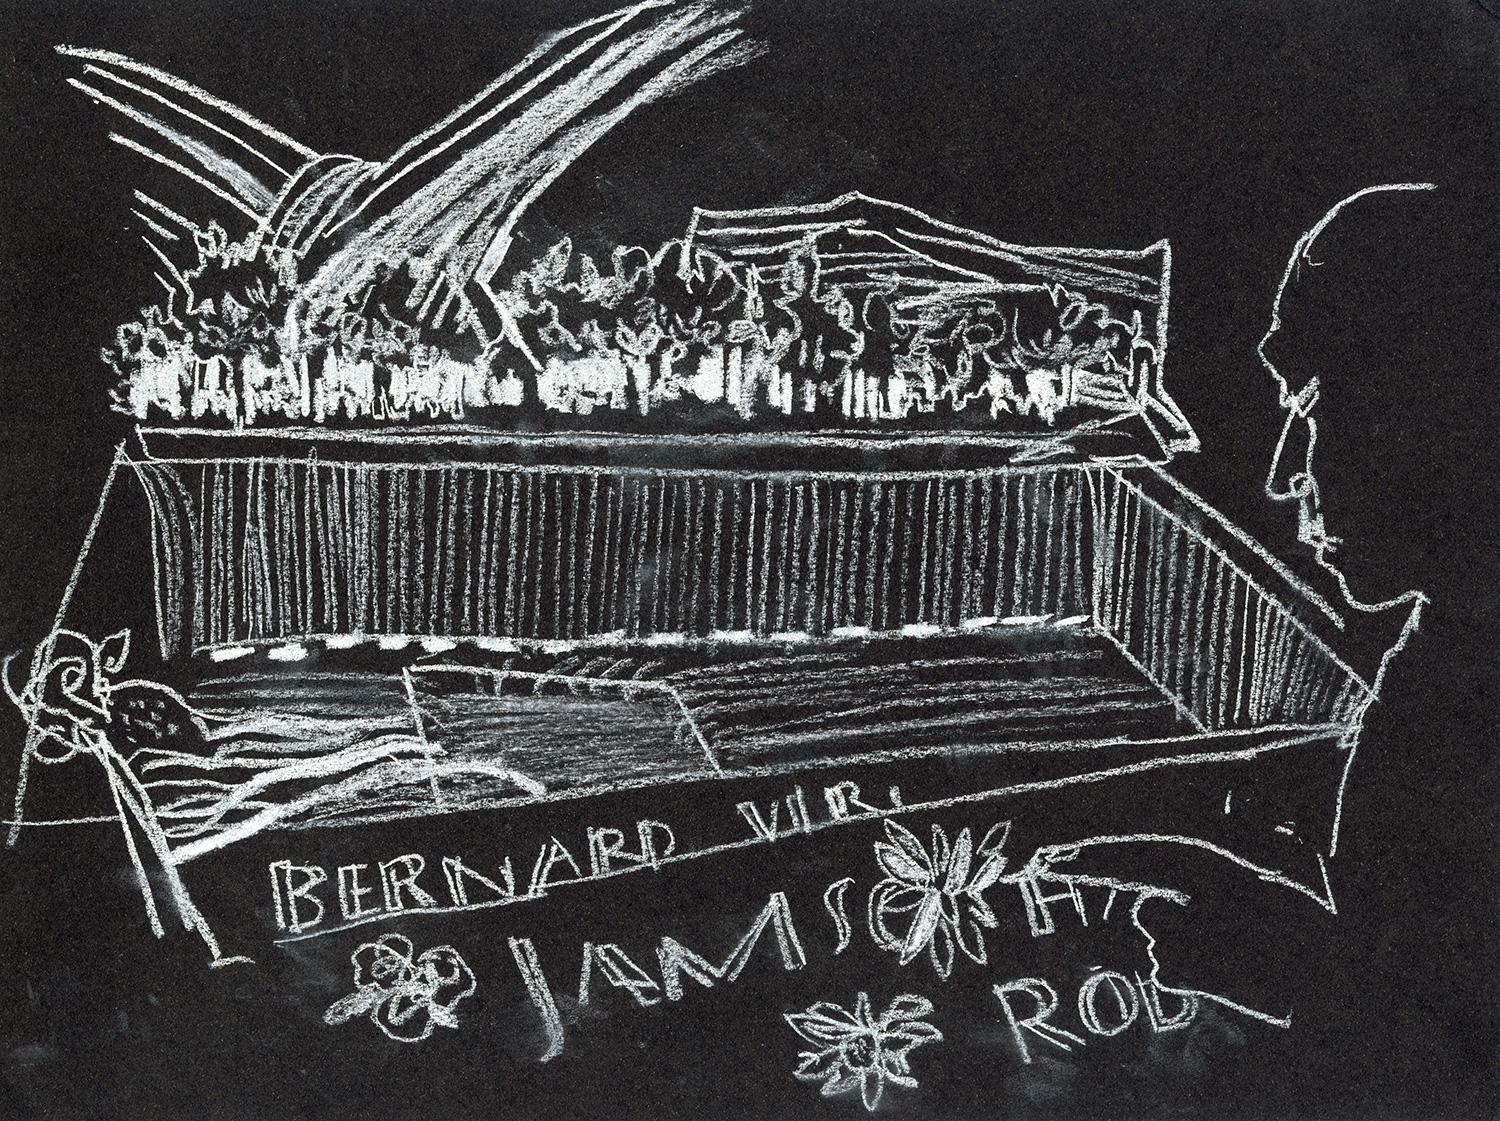 BERNARD VIR.
JAM SC
ROD